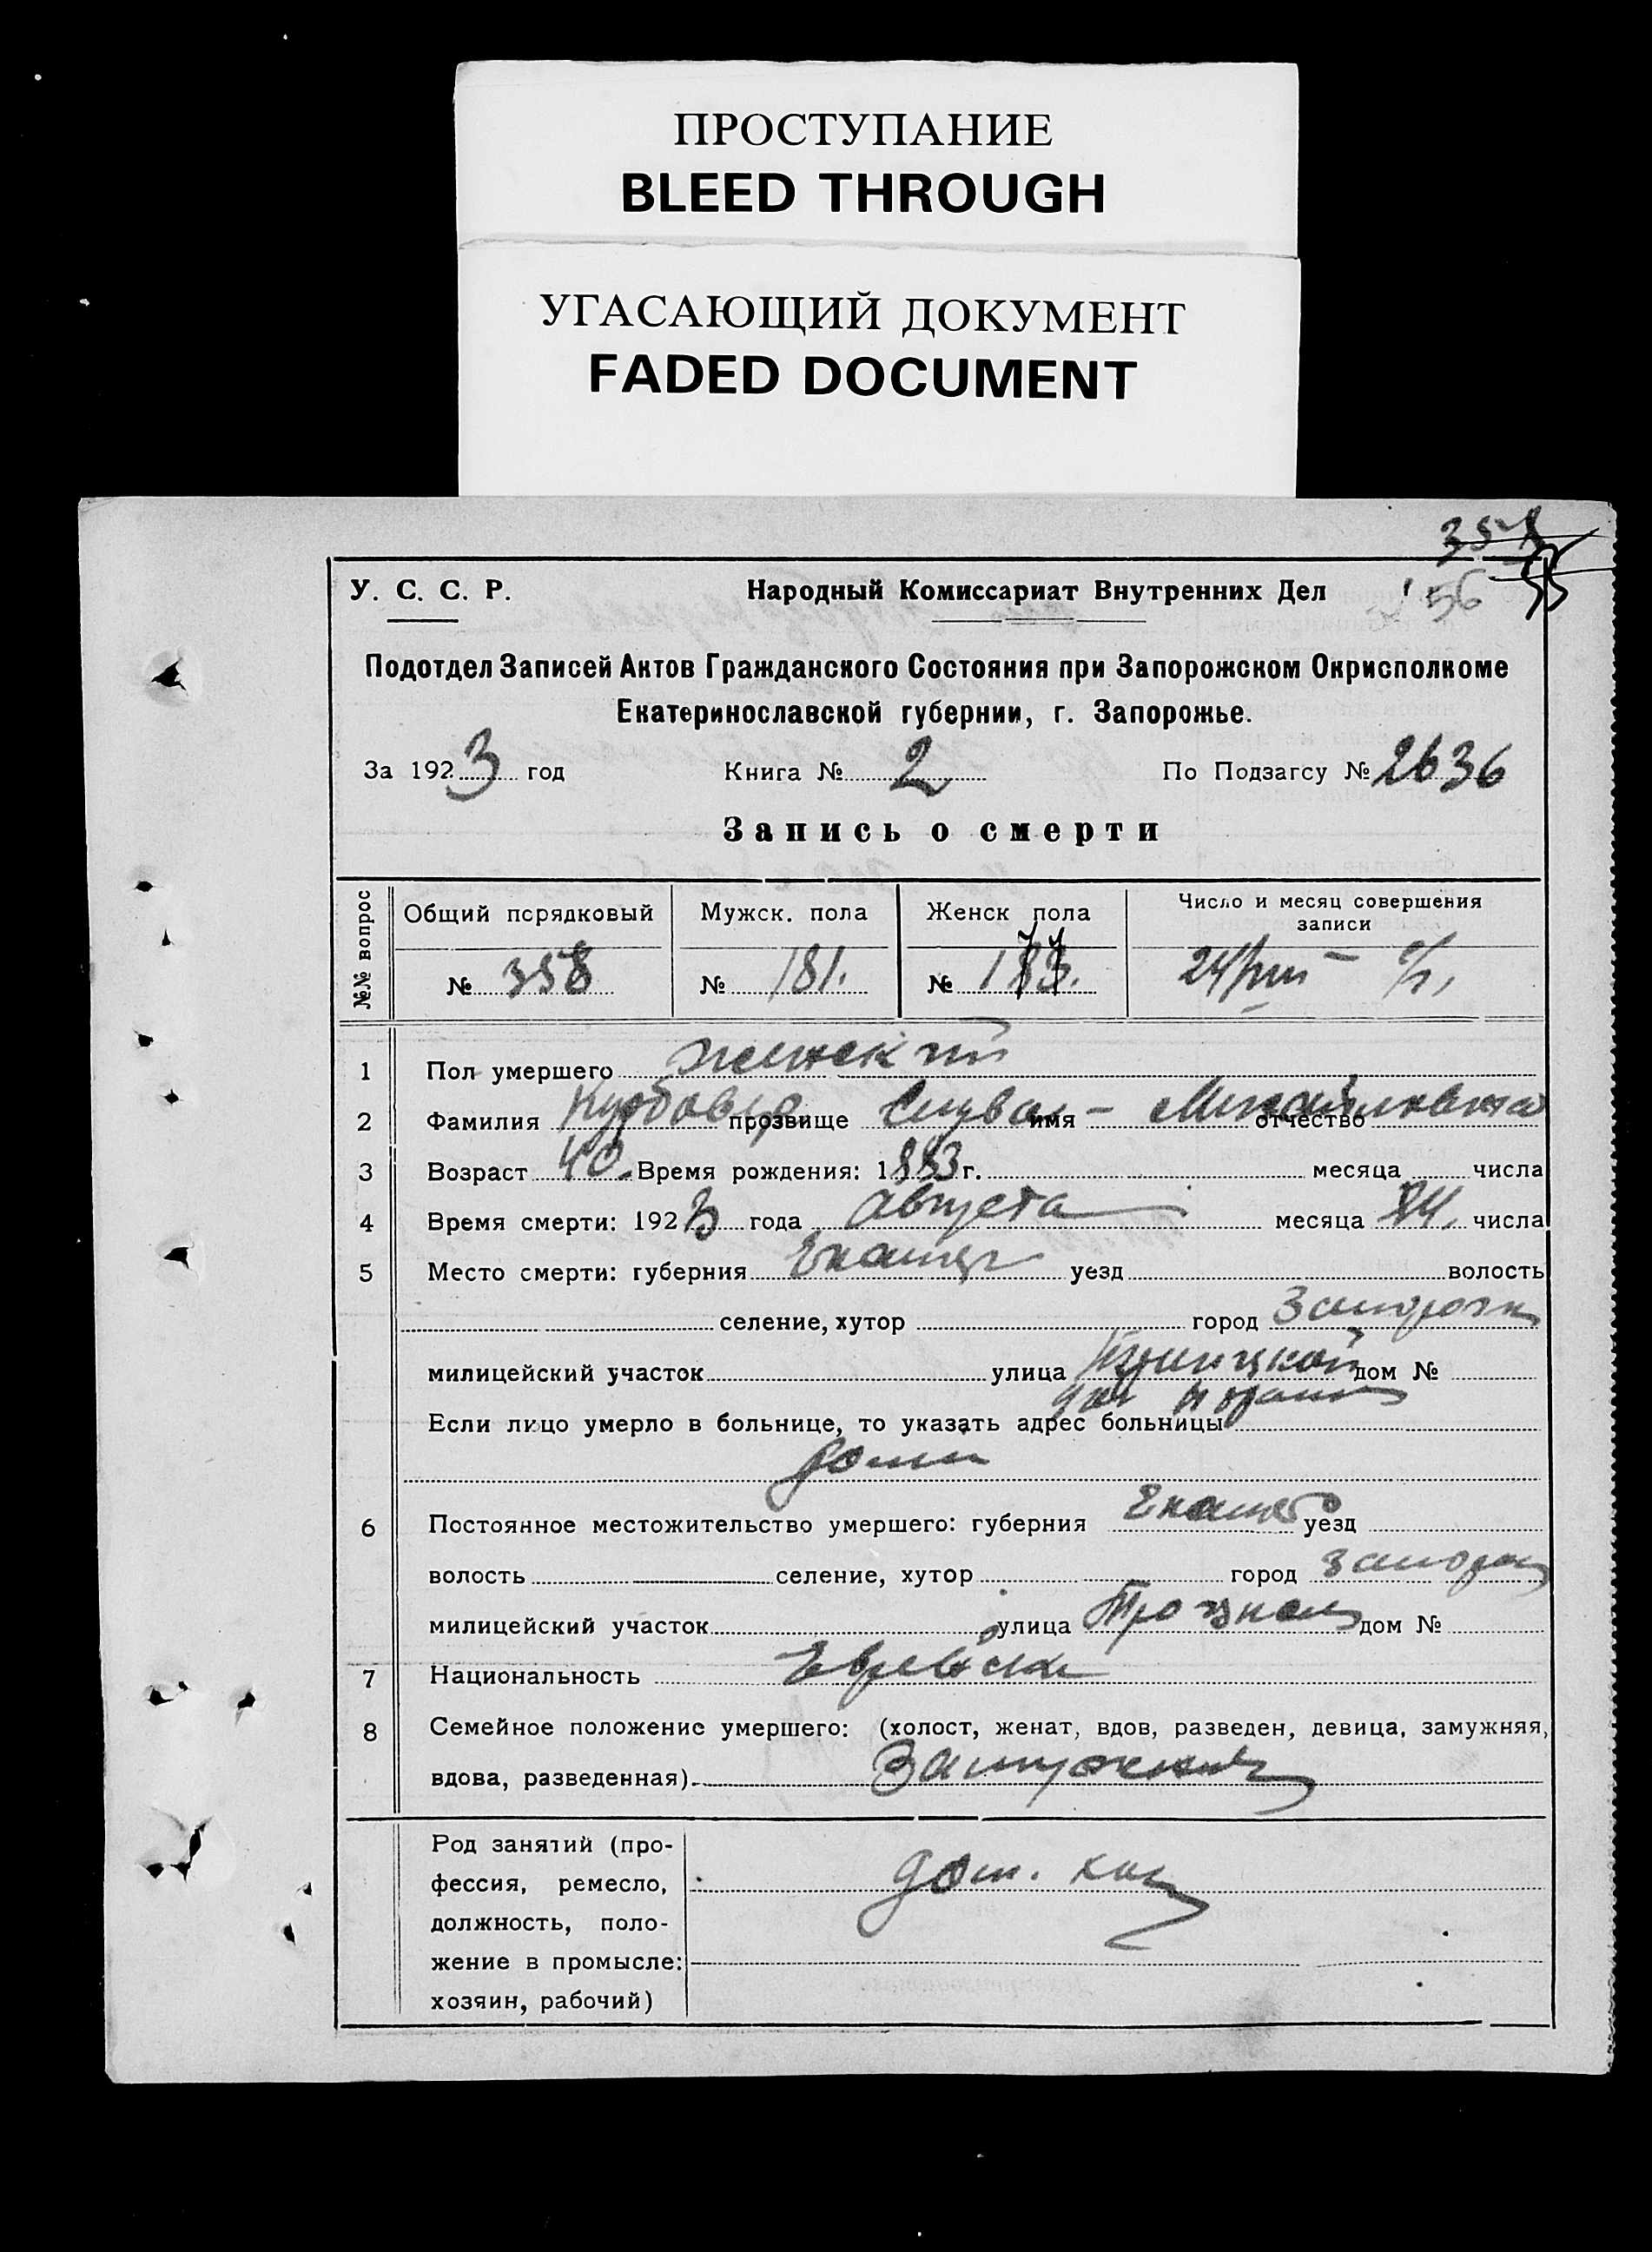 ПРОСТУПАНИЕ
BLEED THROUGH
УГАСАЮЩИЙ ДОКУМЕНТ
FADED DOCUMENT
У. С. С. Р. Народный Комиссариат Внутренних Дел 56
Подотдел Записей Актов Гражданского Состояния при Запорожском Окрисполкоме
Екатеринославской губернии, г. Запорожье.
За 1923 год Книга № 2 По Подзагсу № 2636
Запись о смерти
№№ вопрос
Общий порядковый Мужск. пола Женск пола Число и месяц совершения
записи
№ 358 № 181. № 24/VIII
1 Пол умершего женский
2 Фамилия прозвище имя Михайловна отчество
3 Возраст 40. Время рождения: 1883 г. месяца числа
4 Время смерти: 1923 года августа месяца 24. числа
5 Место смерти: губерния Екатер уезд волость
селение, хутор город Запорожье
милицейский участок улица Троицкой дом №
Если лицо умерло в больнице, то указать адрес больницы
дома
6 Постоянное местожительство умершего: губерния Екатер уезд
волость селение, хутор город Запорож
милицейский участок улица Троицкая дом №
7 Национальность Еврейская
8 Семейное положение умершего: (холост, женат, вдов, разведен, девица, замужняя,
вдова, разведенная). Замужняя
Род занятий (про-
фессия, ремесло, дом. хоз
должность, поло-
жение в промысле:
хозяин, рабочий)